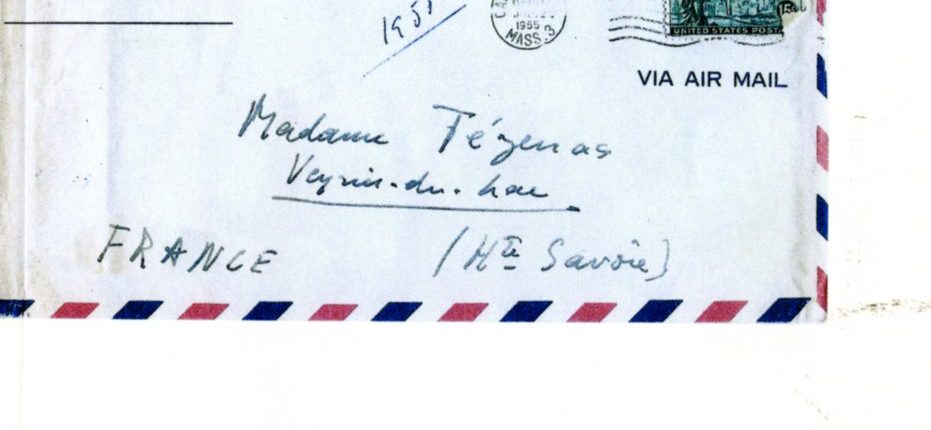 1955
1955
MASS. 3
15¢
UNITED STATES POST
VIA AIR MAIL
Madame Tézenas
Veyrier-du-Lac
FRANCE (Hte Savoie)